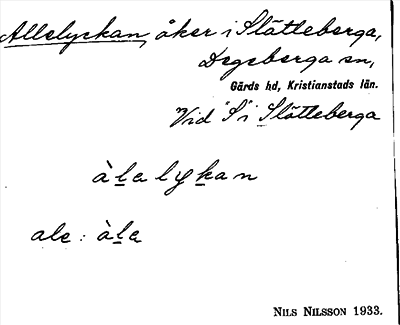 Allelyckan, åker i Slätteberga,
Degeberga sn,
Gärds hd, Kristianstads län.
Vid "S" i Slätteberga
àlalykan
ale : àla
NILS NILSSON 1933.